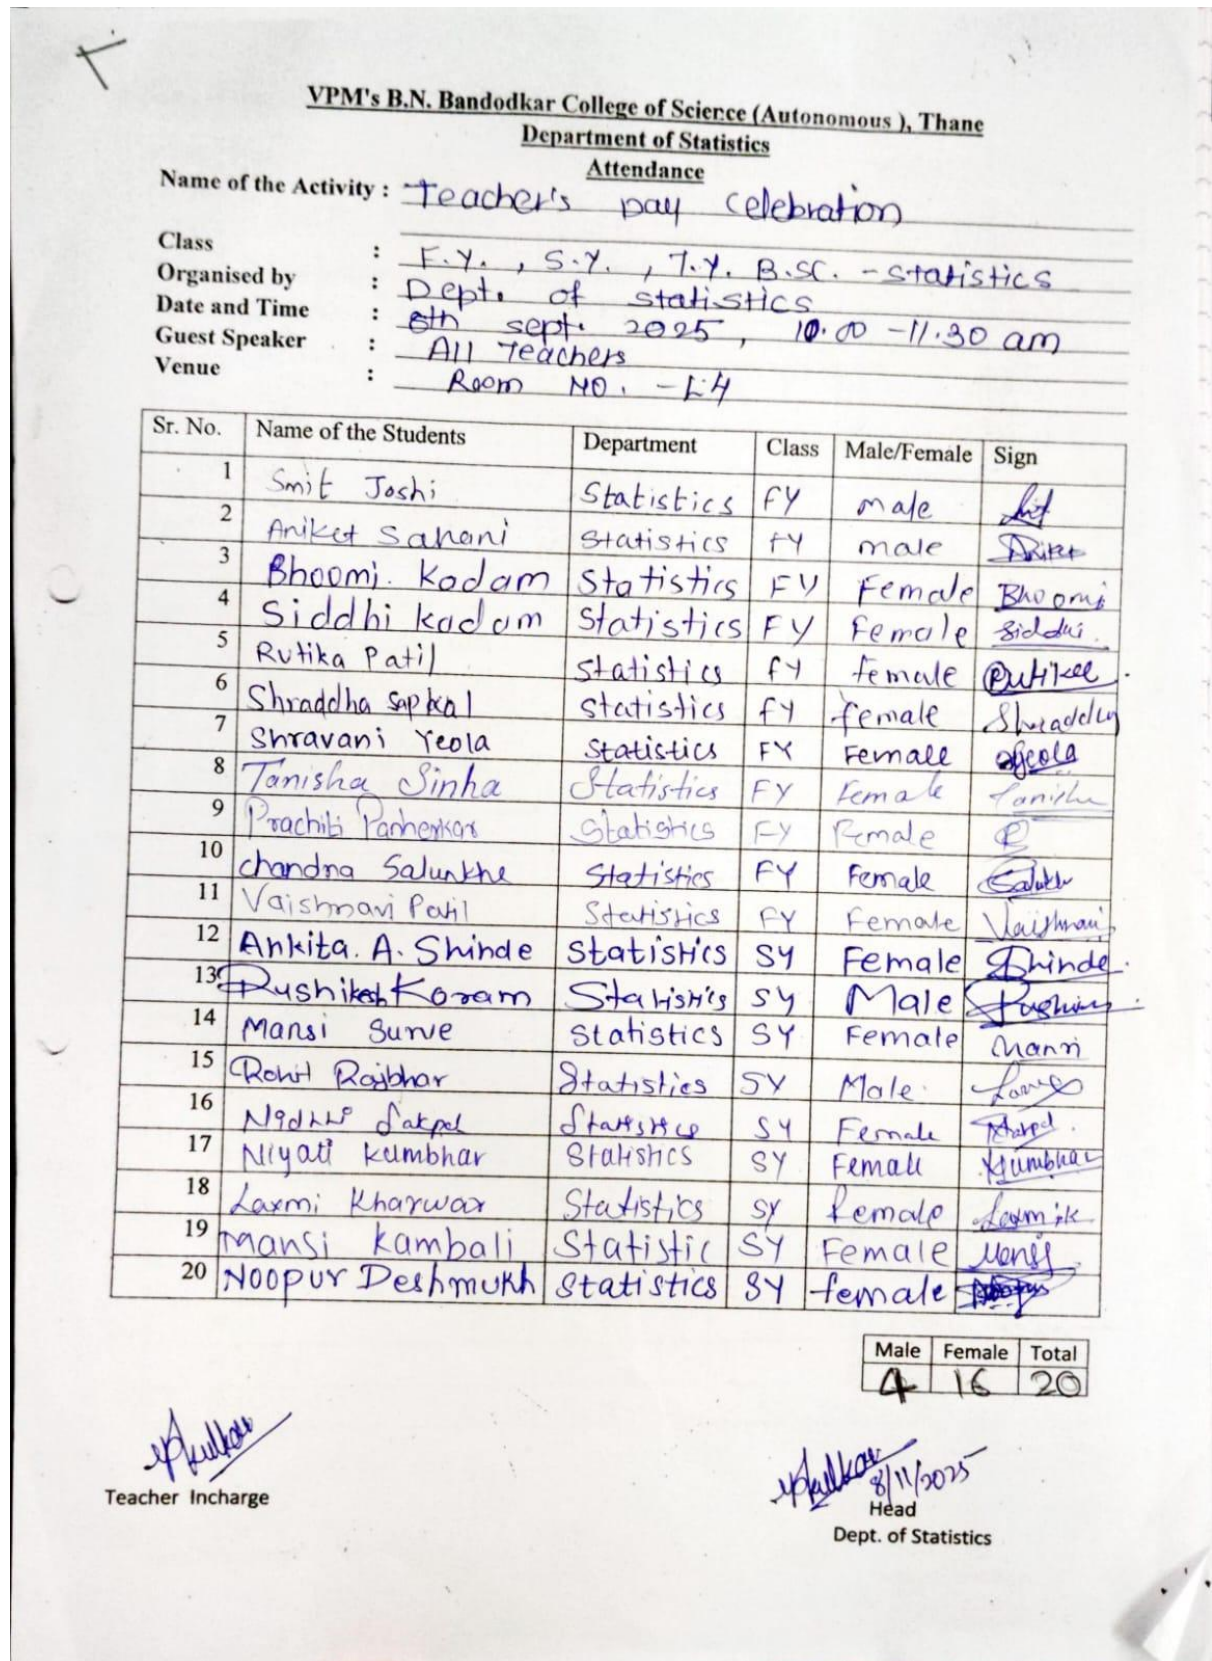 VPM's B.N. Bandodkar College of Science (Autonomous ), Thane
Department of Statistics
Attendance
Name of the Activity : Teacher's Day Celebration
Class : F.Y. , S.Y. , T.Y. B.SC. - statistics
Organised by : Dept. of statistics
Date and Time : 8th sept. 2025 , 10.00 - 11.30 am
Guest Speaker : All Teachers
Venue : Room NO. - L-4
Sr. No. Name of the Students Department Class Male/Female Sign
1 Smit Joshi Statistics FY male
2 Aniket Sahani Statistics FY male Aniket
3 Bhoomi. Kadam Statistics FY Female Bhoomi
4 Siddhi kadam Statistics FY Female Siddhi
5 Rutika Patil Statistics fy female Rutika
6 Shraddha Sapkal Statistics fy female Shraddha
7 Shravani Yeola Statistics FY Female Yeola
8 Tanisha Sinha Statistics FY Female Tanisha
9 Prachiti Panherkar Statistics FY Female
10 chandna Salunkhe Statistics FY Female
11 Vaishnavi Patil Statistics FY Female Vaishnavi
12 Ankita. A. Shinde Statistics SY Female Shinde.
13 Rushikesh Koram Statistics SY Male
14 Mansi Surve Statistics SY Female Mansi
15 Rohit Rajbhar Statistics SY Male
16 Nidhi Sakpal Statistics SY Female
17 Niyati Kumbhar Statistics SY Female Kumbhar
18 Laxmi Kharwar Statistics SY female Laxmi k
19 Mansi Kambali Statistic SY Female Mansi
20 Noopur Deshmukh Statistics SY female
Male Female Total
4 16 20
8/11/2025
Teacher Incharge
Head
Dept. of Statistics